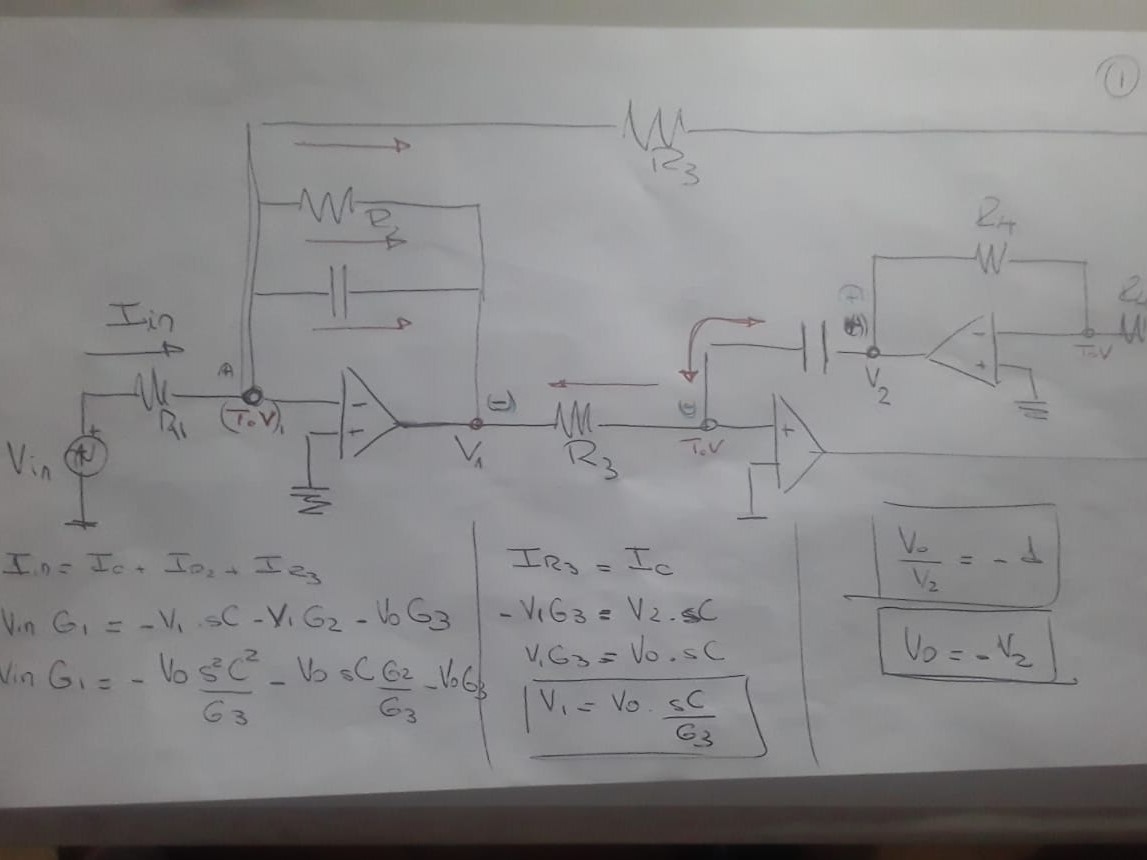 ①
R3
R2
R4
Iin
(+)
R1
(T.V)1
Vin
+
-
+
(-)
V1
R3
(-)
T.V
+
(+)
V2
-
+
T.V
Iin = Ic + IR2 + IR3
Vin G1 = -V1 . sC - V1 G2 - Vo G3
Vin G1 = - Vo s²C²/G3 - Vo sC G2/G3 - Vo G3
IR3 = Ic
- V1 G3 = V2 . sC
V1 G3 = Vo . sC
V1 = Vo . sC/G3
Vo/V2 = - 1
Vo = - V2